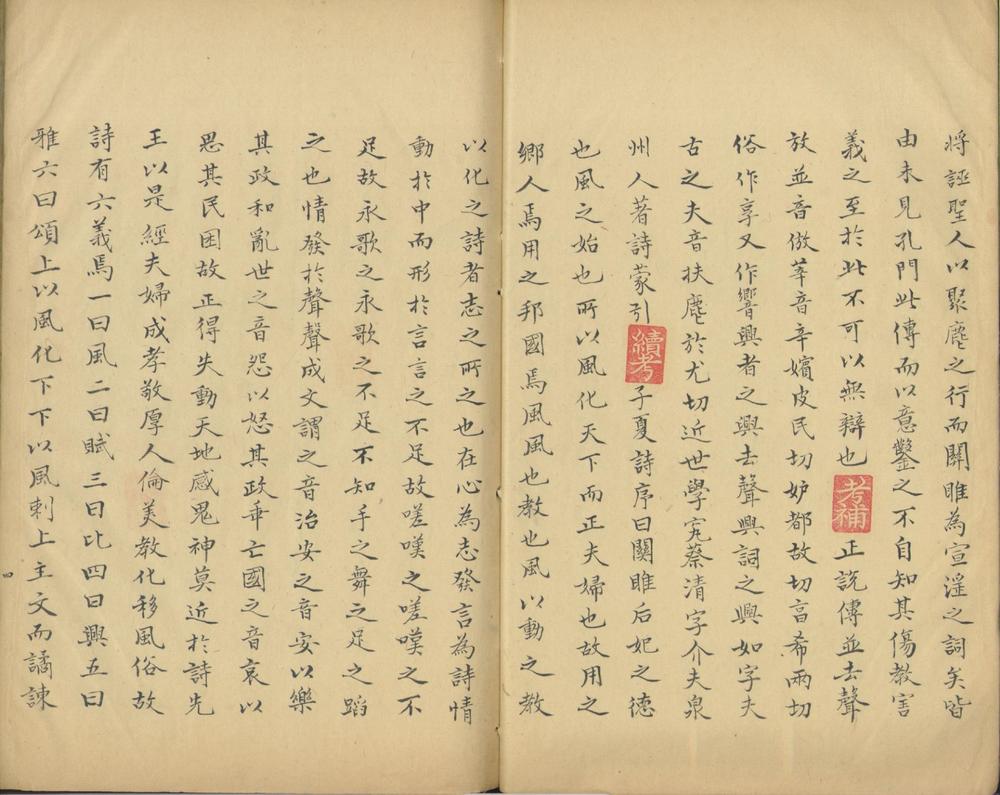 將誣聖人以聚麀之行而關雎為宣淫之詞矣皆
由未見孔門此傳而以意鑿之不自知其傷教害
義之至於此不可以無辯也考補正說傳並去聲
放並音倣莘音辛嬪皮民切妒都故切亯希兩切
俗作享又作響興者之興去聲興詞之興如字夫
古之夫音扶麀於尤切近世學究蔡清字介夫泉
州人著詩蒙引續考子夏詩序曰關雎后妃之德
也風之始也所以風化天下而正夫婦也故用之
鄉人焉用之邦國焉風風也教也風以動之教
以化之詩者志之所之也在心為志發言為詩情
動於中而形於言言之不足故嗟嘆之嗟嘆之不
足故永歌之永歌之不足不知手之舞之足之蹈
之也情發於聲聲成文謂之音治安之音安以樂
其政和亂世之音怨以怒其政乖亡國之音哀以
思其民困故正得失動天地感鬼神莫近於詩先
王以是經夫婦成孝敬厚人倫美教化移風俗故
詩有六義焉一曰風二曰賦三曰比四曰興五曰
雅六曰頌上以風化下下以風刺上主文而譎諫
四